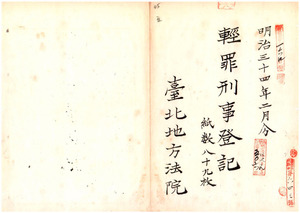 明治三十四年二月分
輕罪刑事登記
紙數八十九枚
臺北地方法院